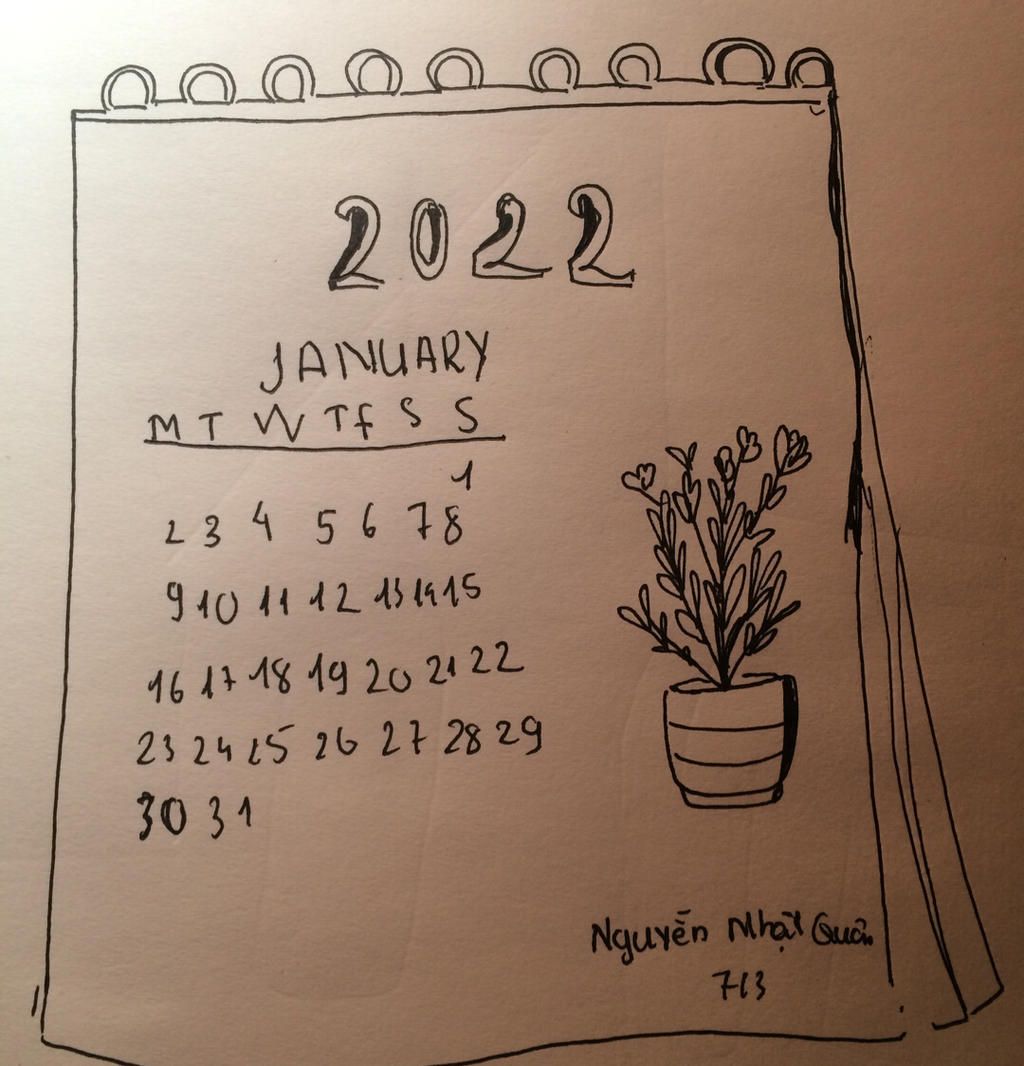 2022
JANUARY
M T W T f S S
1
2 3 4 5 6 7 8
9 10 11 12 13 14 15
16 17 18 19 20 21 22
23 24 25 26 27 28 29
30 31
Nguyễn Nhật Quân
713